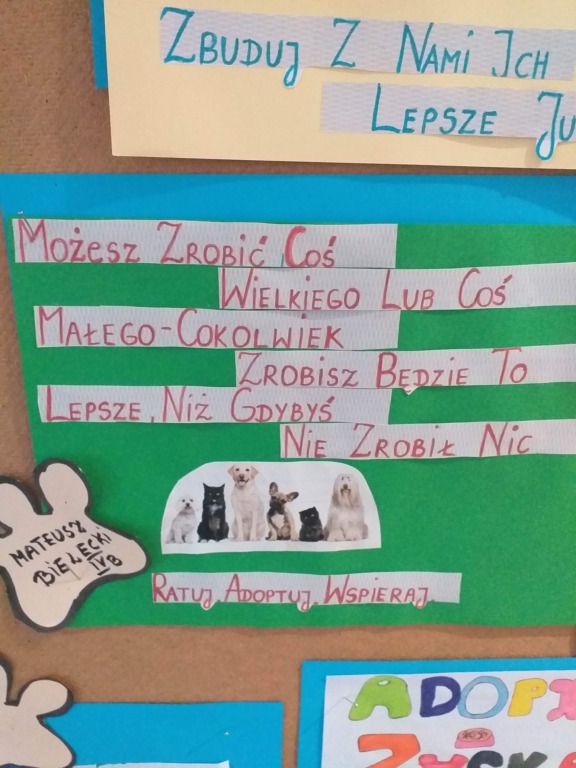 ZBUDUJ Z NAMI ICH
LEPSZE
MOŻESZ ZROBIĆ COŚ
WIELKIEGO LUB COŚ
MAŁEGO-COKOLWIEK
ZROBISZ BĘDZIE TO
LEPSZE, NIŻ GDYBYŚ
NIE ZROBIŁ NIC
MATEUSZ
BIELECKI
IVB
RATUJ. ADOPTUJ. WSPIERAJ.